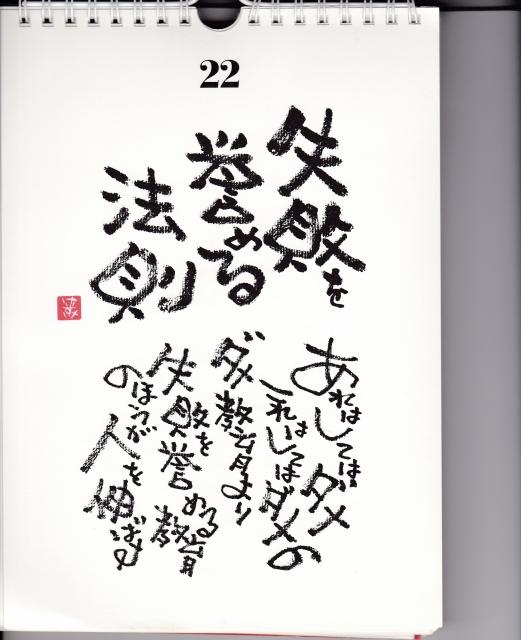 22
失敗を
誉める
法則
あれはしてはダメ
これはしてはダメの
ダメ教育より
失敗を誉める教育
のほうが人を伸ばす